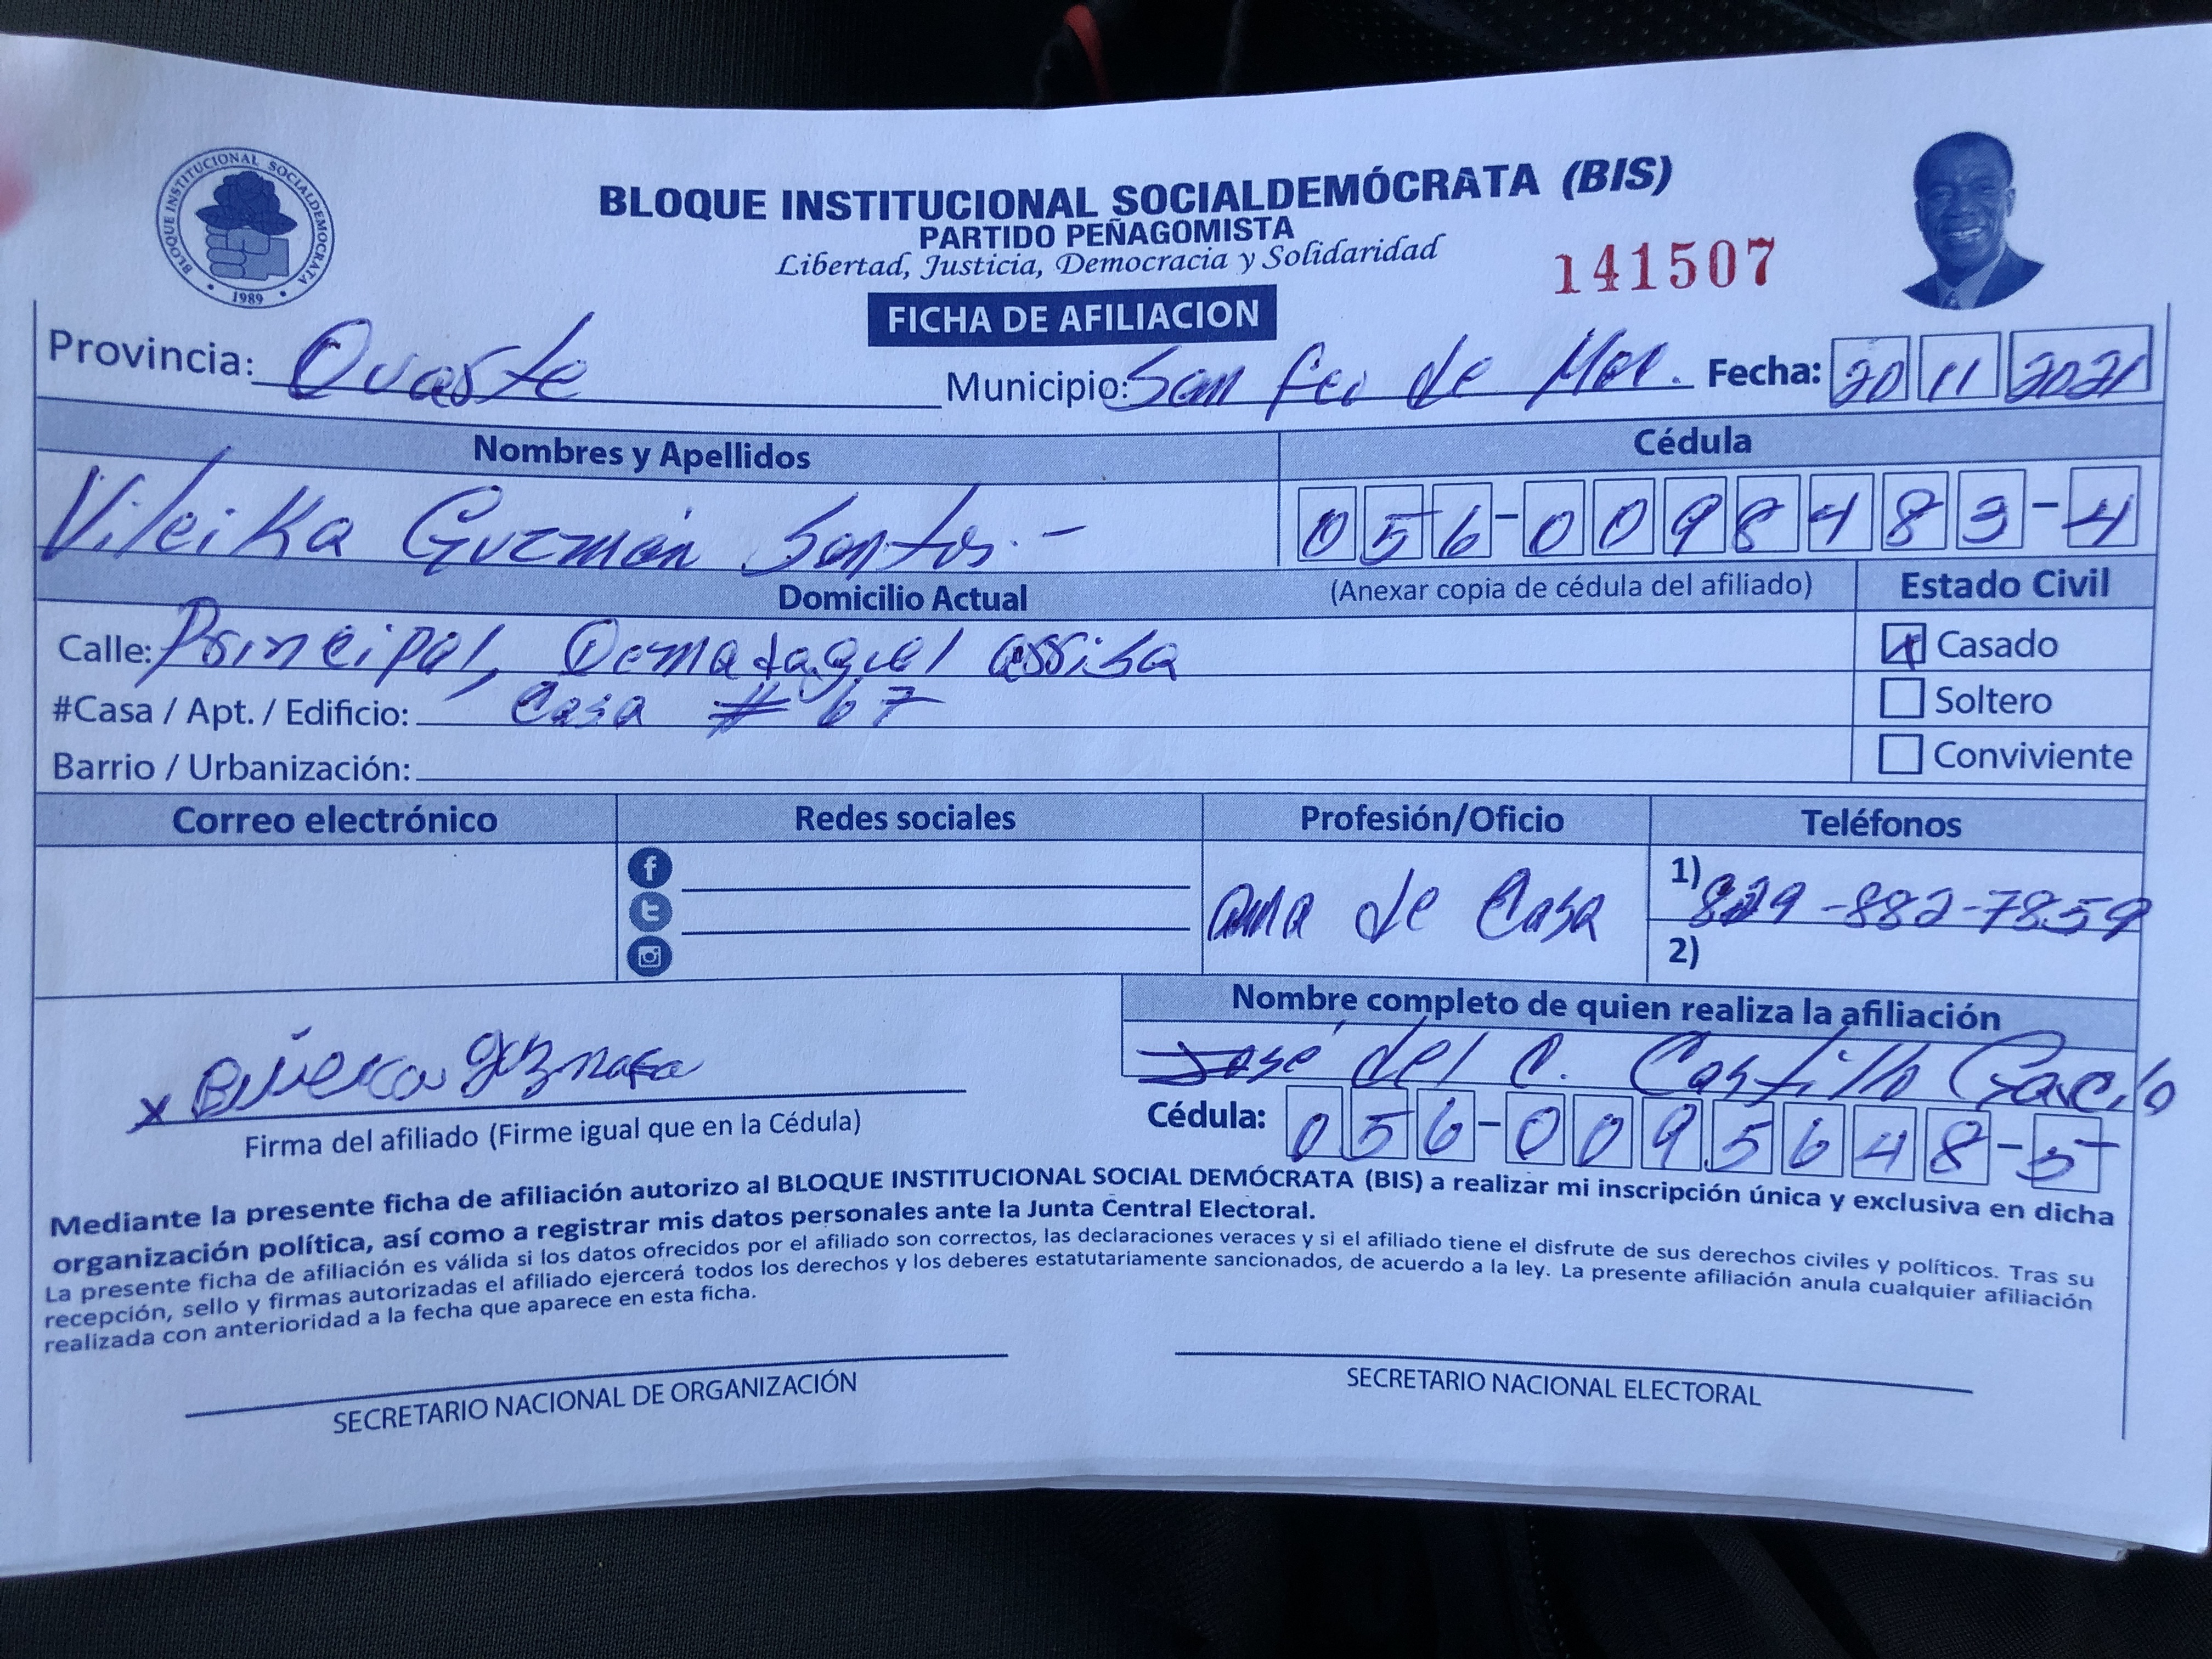 BLOQUE INSTITUCIONAL SOCIALDEMÓCRATA
1989
BLOQUE INSTITUCIONAL SOCIALDEMÓCRATA (BIS)
PARTIDO PEÑAGOMISTA
Libertad, Justicia, Democracia y Solidaridad
141507
FICHA DE AFILIACION
Provincia: Duarte Municipio: San fco de Mac. Fecha: 20 11 2021
Nombres y Apellidos Cédula
Vileika Guzmán Santos.- 056-0098483-4
Domicilio Actual (Anexar copia de cédula del afiliado) Estado Civil
Calle: Principal, arriba Casado
#Casa / Apt. / Edificio: Casa # 67 Soltero
Barrio / Urbanización: Conviviente
Correo electrónico Redes sociales Profesión/Oficio Teléfonos
ama de Casa 1) 829-882-7859
2)
Nombre completo de quien realiza la afiliación
x
José del C. Castillo
Firma del afiliado (Firme igual que en la Cédula) Cédula: 056-0095648-5
Mediante la presente ficha de afiliación autorizo al BLOQUE INSTITUCIONAL SOCIAL DEMÓCRATA (BIS) a realizar mi inscripción única y exclusiva en dicha
organización política, así como a registrar mis datos personales ante la Junta Central Electoral.
La presente ficha de afiliación es válida si los datos ofrecidos por el afiliado son correctos, las declaraciones veraces y si el afiliado tiene el disfrute de sus derechos civiles y políticos. Tras su
recepción, sello y firmas autorizadas el afiliado ejercerá todos los derechos y los deberes estatutariamente sancionados, de acuerdo a la ley. La presente afiliación anula cualquier afiliación
realizada con anterioridad a la fecha que aparece en esta ficha.
SECRETARIO NACIONAL DE ORGANIZACIÓN SECRETARIO NACIONAL ELECTORAL